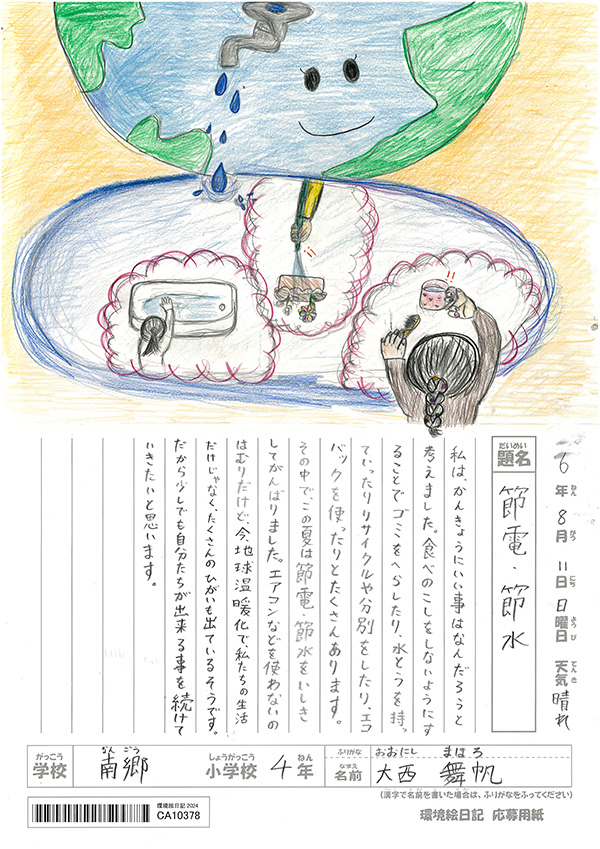 6年ねん8月がつ11日にち日曜日ようび 天気てんき晴れ
だいめい
題名
節電・節水
私は、かんきょうにいい事はなんだろうと
考えました。食べのこしをしないようにす
ることでゴミをへらしたり、水とうを持っ
ていったりリサイクルや分別をしたり、エコ
バックを使ったりとたくさんあります。
その中で、この夏は節電・節水をいしき
してがんばりました。エアコンなどを使わないの
はむりだけど、今、地球温暖化で、私たちの生活
だけじゃなく、たくさんのひがいも出ているそうです。
だから少しでも自分たちが出来る事を続けて
いきたいと思います。
がっこう
学校
なんごう
南郷
しょうがっこう
小学校
4年ねん
ふりがな
おおにし まほろ
なまえ
名前
大西 舞帆
(漢字で名前を書いた場合は、ふりがなをふってください)
環境絵日記 2024
CA10378
環境絵日記 応募用紙